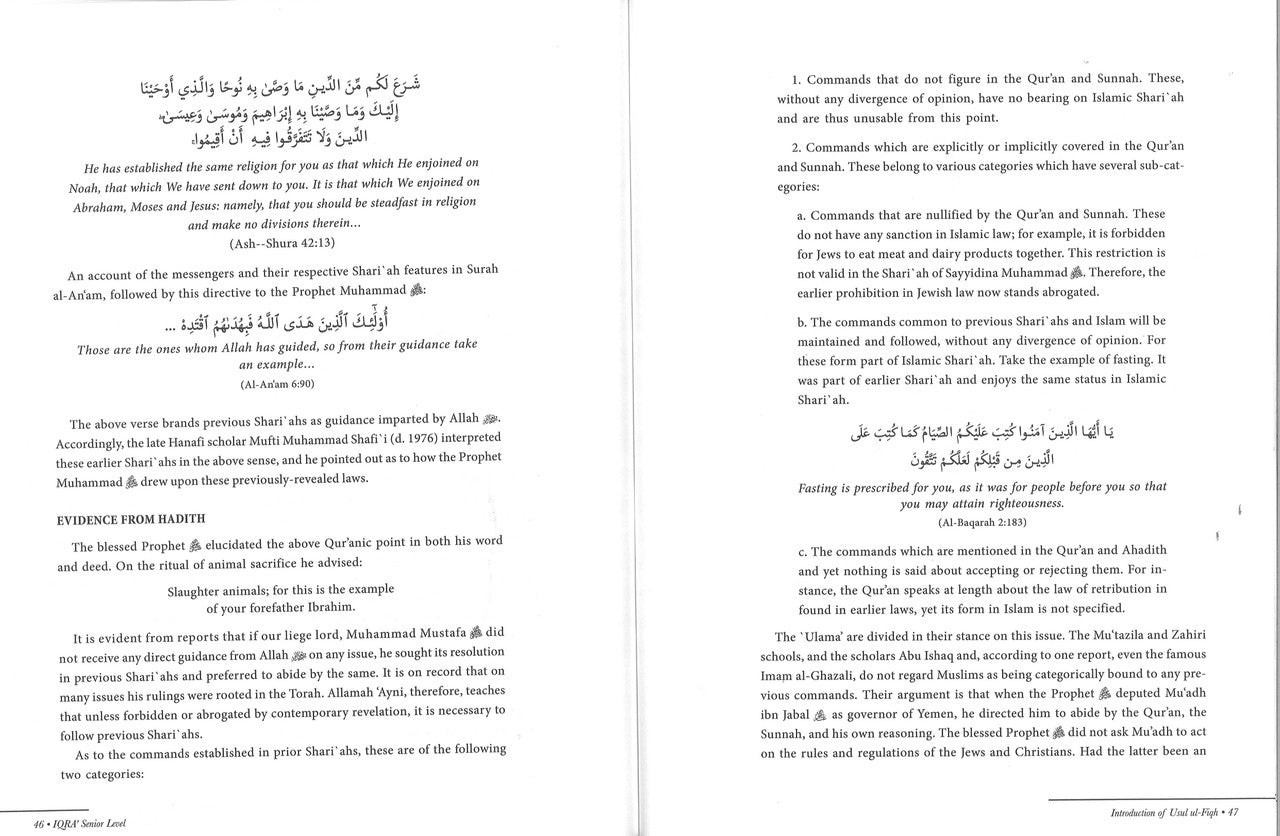 شَرَعَ لَكُم مِّنَ الدِّينِ مَا وَصَّىٰ بِهِ نُوحًا وَالَّذِي أَوْحَيْنَا
إِلَيْكَ وَمَا وَصَّيْنَا بِهِ إِبْرَاهِيمَ وَمُوسَىٰ وَعِيسَىٰ
الدِّينَ وَلَا تَتَفَرَّقُوا فِيهِ أَنْ أَقِيمُوا
He has established the same religion for you as that which He enjoined on
Noah, that which We have sent down to you. It is that which We enjoined on
Abraham, Moses and Jesus: namely, that you should be steadfast in religion
and make no divisions therein…
(Ash--Shura 42:13)
An account of the messengers and their respective Shari`ah features in Surah
al-An‘am, followed by this directive to the Prophet Muhammad ﷺ:
أُوْلَٰٓئِكَ ٱلَّذِينَ هَدَى ٱللَّهُ فَبِهُدَىٰهُمُ ٱقْتَدِهْ ...
Those are the ones whom Allah has guided, so from their guidance take
an example…
(Al-An‘am 6:90)
The above verse brands previous Shari`ahs as guidance imparted by Allah ﷻ.
Accordingly, the late Hanafi scholar Mufti Muhammad Shafi`i (d. 1976) interpreted
these earlier Shari`ahs in the above sense, and he pointed out as to how the Prophet
Muhammad ﷺ drew upon these previously-revealed laws.
EVIDENCE FROM HADITH
The blessed Prophet ﷺ elucidated the above Qur’anic point in both his word
and deed. On the ritual of animal sacrifice he advised:
Slaughter animals; for this is the example
of your forefather Ibrahim.
It is evident from reports that if our liege lord, Muhammad Mustafa ﷺ did
not receive any direct guidance from Allah ﷻ on any issue, he sought its resolution
in previous Shari`ahs and preferred to abide by the same. It is on record that on
many issues his rulings were rooted in the Torah. Allamah ‘Ayni, therefore, teaches
that unless forbidden or abrogated by contemporary revelation, it is necessary to
follow previous Shari`ahs.
As to the commands established in prior Shari`ahs, these are of the following
two categories:
46 • IQRA’ Senior Level
1. Commands that do not figure in the Qur’an and Sunnah. These,
without any divergence of opinion, have no bearing on Islamic Shari`ah
and are thus unusable from this point.
2. Commands which are explicitly or implicitly covered in the Qur’an
and Sunnah. These belong to various categories which have several sub-cat-
egories:
a. Commands that are nullified by the Qur’an and Sunnah. These
do not have any sanction in Islamic law; for example, it is forbidden
for Jews to eat meat and dairy products together. This restriction is
not valid in the Shari`ah of Sayyidina Muhammad ﷺ. Therefore, the
earlier prohibition in Jewish law now stands abrogated.
b. The commands common to previous Shari`ahs and Islam will be
maintained and followed, without any divergence of opinion. For
these form part of Islamic Shari`ah. Take the example of fasting. It
was part of earlier Shari`ah and enjoys the same status in Islamic
Shari`ah.
يَا أَيُّهَا الَّذِينَ آمَنُوا كُتِبَ عَلَيْكُمُ الصِّيَامُ كَمَا كُتِبَ عَلَى
الَّذِينَ مِن قَبْلِكُمْ لَعَلَّكُمْ تَتَّقُونَ
Fasting is prescribed for you, as it was for people before you so that
you may attain righteousness.
(Al-Baqarah 2:183)
c. The commands which are mentioned in the Qur’an and Ahadith
and yet nothing is said about accepting or rejecting them. For in-
stance, the Qur’an speaks at length about the law of retribution in
found in earlier laws, yet its form in Islam is not specified.
The `Ulama’ are divided in their stance on this issue. The Mu‘tazila and Zahiri
schools, and the scholars Abu Ishaq and, according to one report, even the famous
Imam al-Ghazali, do not regard Muslims as being categorically bound to any pre-
vious commands. Their argument is that when the Prophet ﷺ deputed Mu‘adh
ibn Jabal as governor of Yemen, he directed him to abide by the Qur’an, the
Sunnah, and his own reasoning. The blessed Prophet ﷺ did not ask Mu’adh to act
on the rules and regulations of the Jews and Christians. Had the latter been an
Introduction of Usul ul-Fiqh • 47